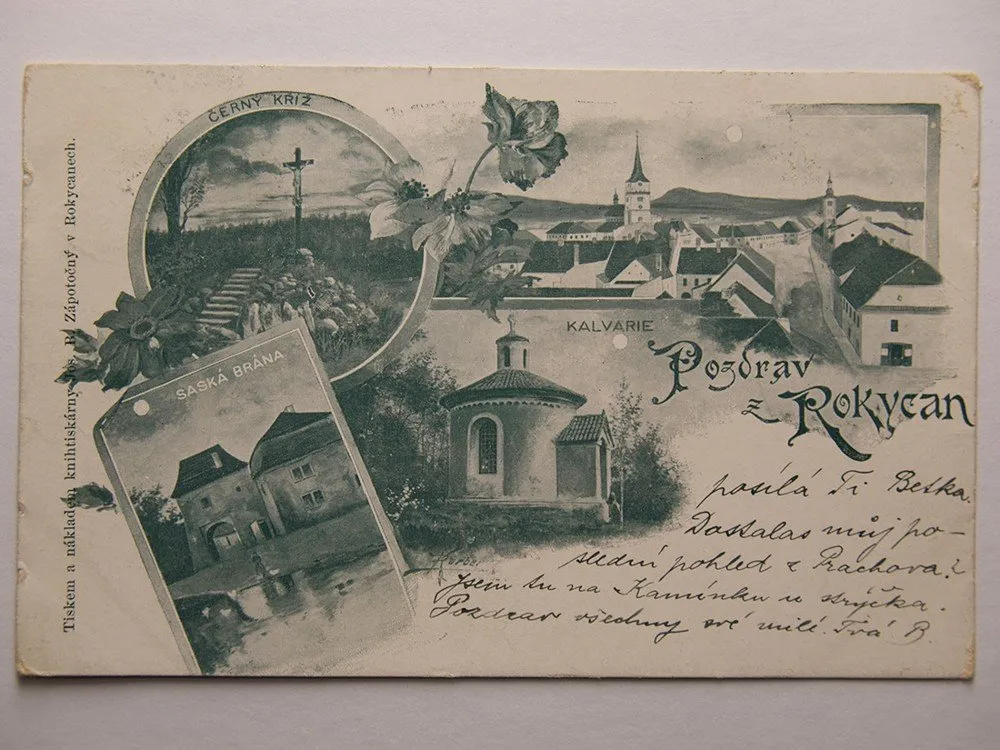 ČERNÝ KŘÍŽ
SASKÁ BRÁNA
KALVARIE
Pozdrav
z Rokycan
posílá Ti Betka.
Dostalas můj po-
slední pohled z Prachova?
Jsem tu na Kamínku u strýčka.
Pozdrav všechny své milé. Tvá B.
Tiskem a nákladem knihtiskárny Jos. B. Zápotočný v Rokycanech.